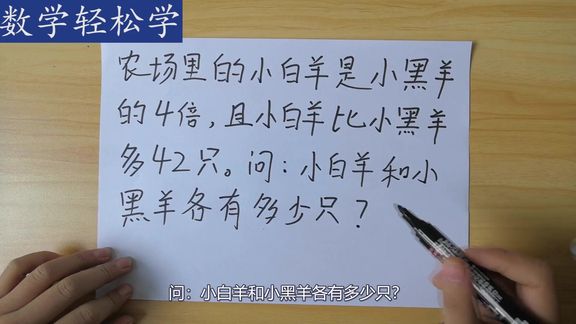 数学轻松学
农场里的小白羊是小黑羊
的4倍,且小白羊比小黑羊
多42只。问:小白羊和小
黑羊各有多少只?
问：小白羊和小黑羊各有多少只?